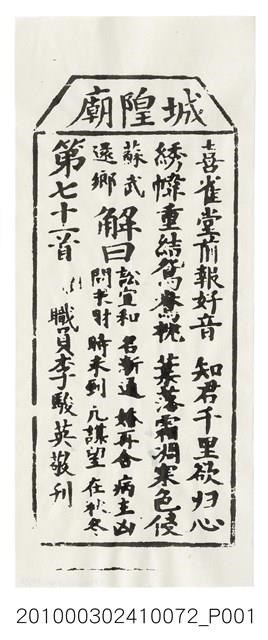 城隍廟
喜雀堂前報好音 知君千里欲归心
綉幃重結鴛鴦枕 葉落霜凋寒色侵
蘇武還鄉
解曰
訟宜和 名漸通 婚再合 病主凶
問求財 時未到 凡謀望 在秋冬
第七十一首
職員李駿英敬刊
201000302410072_P001